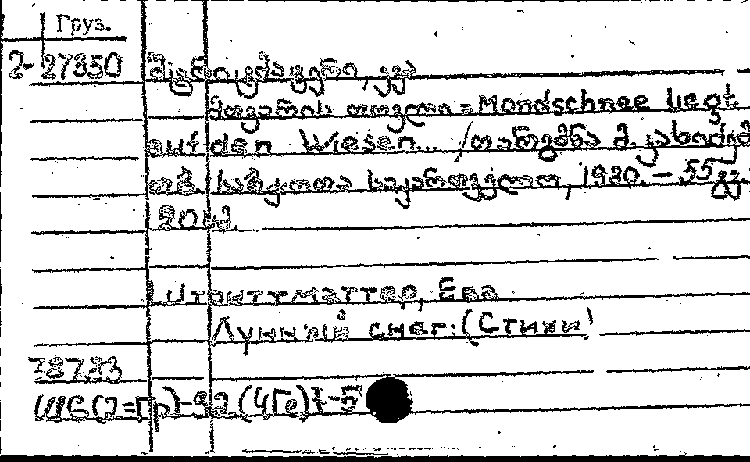 Груз.
2-27350 შტრიტმატერი, ევა
მთვარის თოვლი = Mondschnee liegt
auf den Wiesen... / თარგმნა
თბ. საბჭოთა საქართველო, 1980. – 55 გვ.
20 სმ.
Штриттматтер, Ева
Лунный снег: (Стихи)
38733